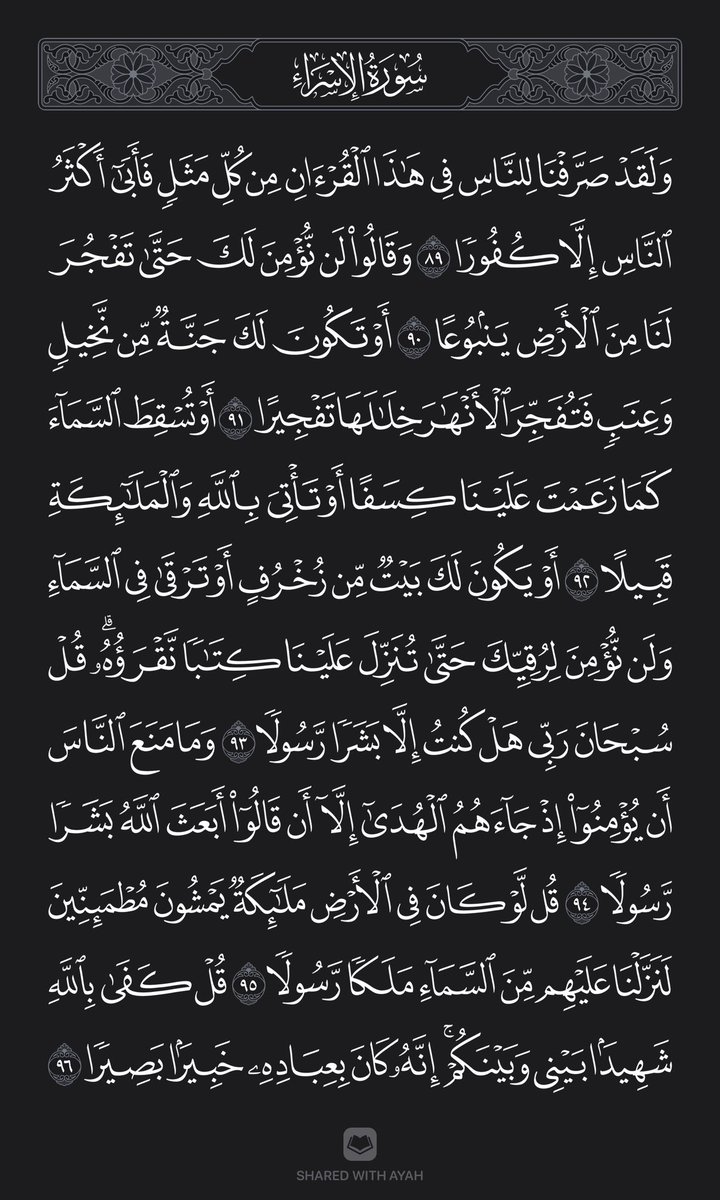 سُورَةُ الإِسۡرَاءِ
وَلَقَدۡ صَرَّفۡنَا لِلنَّاسِ فِي هَٰذَا ٱلۡقُرۡءَانِ مِن كُلِّ مَثَلٖ فَأَبَىٰٓ أَكۡثَرُ
ٱلنَّاسِ إِلَّا كُفُورٗا ٨٩ وَقَالُواْ لَن نُّؤۡمِنَ لَكَ حَتَّىٰ تَفۡجُرَ
لَنَا مِنَ ٱلۡأَرۡضِ يَنۢبُوعًا ٩٠ أَوۡ تَكُونَ لَكَ جَنَّةٞ مِّن نَّخِيلٖ
وَعِنَبٖ فَتُفَجِّرَ ٱلۡأَنۡهَٰرَ خِلَٰلَهَا تَفۡجِيرًا ٩١ أَوۡ تُسۡقِطَ ٱلسَّمَآءَ
كَمَا زَعَمۡتَ عَلَيۡنَا كِسَفًا أَوۡ تَأۡتِيَ بِٱللَّهِ وَٱلۡمَلَٰٓئِكَةِ
قَبِيلًا ٩٢ أَوۡ يَكُونَ لَكَ بَيۡتٞ مِّن زُخۡرُفٍ أَوۡ تَرۡقَىٰ فِي ٱلسَّمَآءِ
وَلَن نُّؤۡمِنَ لِرُقِيِّكَ حَتَّىٰ تُنَزِّلَ عَلَيۡنَا كِتَٰبٗا نَّقۡرَؤُهُۥۗ قُلۡ
سُبۡحَانَ رَبِّي هَلۡ كُنتُ إِلَّا بَشَرٗا رَّسُولٗا ٩٣ وَمَا مَنَعَ ٱلنَّاسَ
أَن يُؤۡمِنُوٓاْ إِذۡ جَآءَهُمُ ٱلۡهُدَىٰٓ إِلَّآ أَن قَالُوٓاْ أَبَعَثَ ٱللَّهُ بَشَرٗا
رَّسُولٗا ٩٤ قُل لَّوۡ كَانَ فِي ٱلۡأَرۡضِ مَلَٰٓئِكَةٞ يَمۡشُونَ مُطۡمَئِنِّينَ
لَنَزَّلۡنَا عَلَيۡهِم مِّنَ ٱلسَّمَآءِ مَلَكٗا رَّسُولٗا ٩٥ قُلۡ كَفَىٰ بِٱللَّهِ
شَهِيدَۢا بَيۡنِي وَبَيۡنَكُمۡۚ إِنَّهُۥ كَانَ بِعِبَادِهِۦ خَبِيرَۢا بَصِيرٗا ٩٦
SHARED WITH AYAH